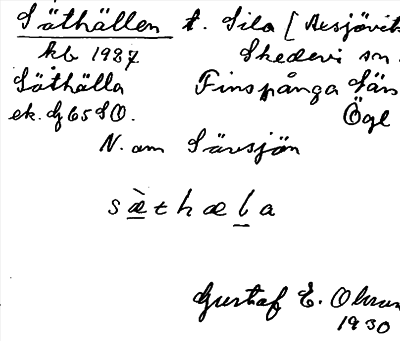 Säthällen t. Sila [Resjövik
kb 1927 Skedevi sn.
Säthälla Finspånga län
ek. G 65 SO. Ögl
N. om Sävsjön
sæthæla
Gustaf E. Olsson
1930